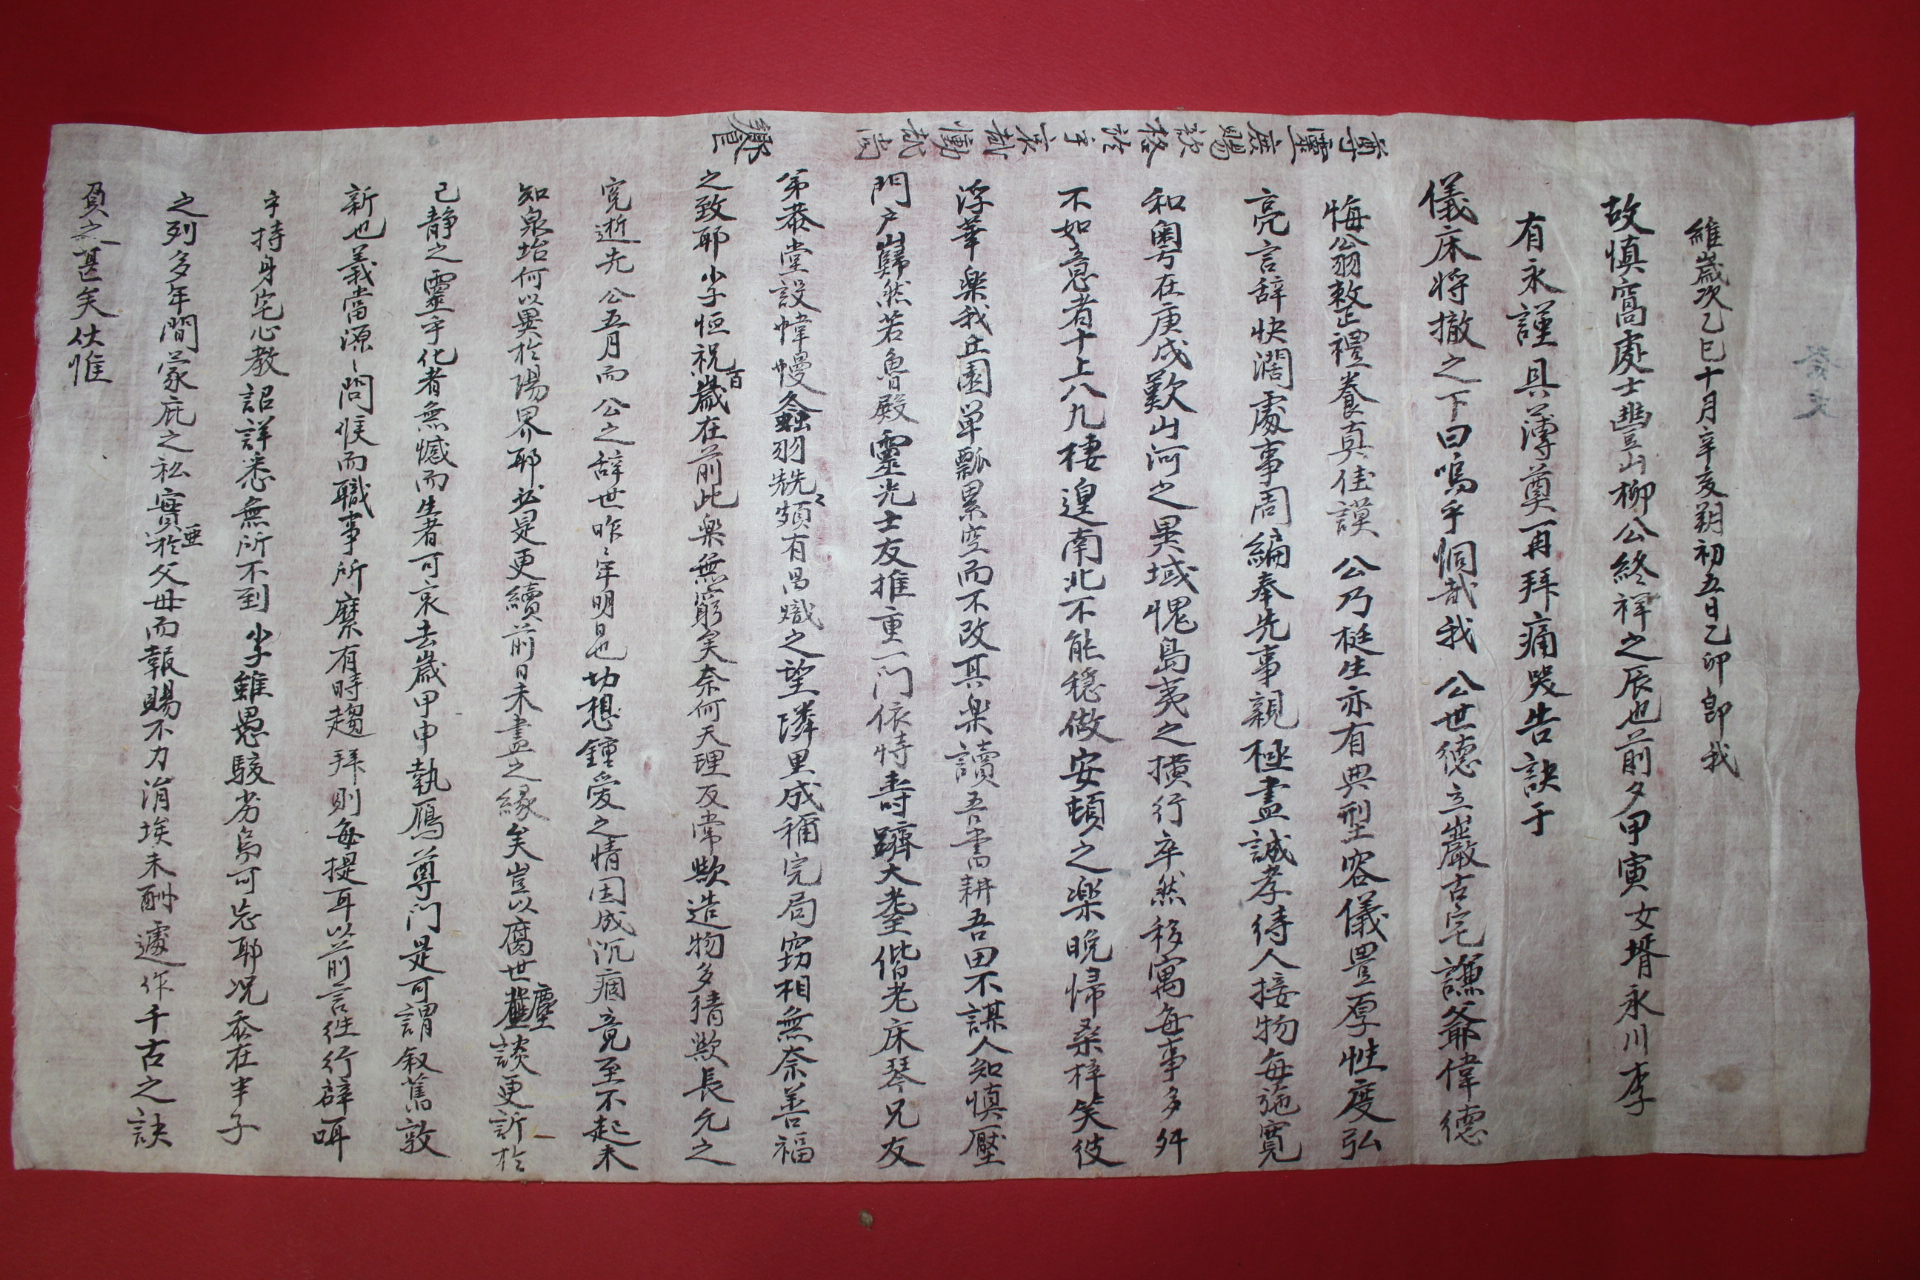 維歲次乙巳十月辛亥朔初五日乙卯卽我
故愼窩處士豊山柳公終祥之辰也前夕甲寅女壻永川李
有永謹具薄奠再拜痛哭告訣于
儀床將撤之下曰嗚乎恫哉我 公世德立巖古宅謙爺偉德
悔翁敦正禮養真佳謨 公乃挺生亦有典型容儀豊厚性度弘
亮言辞快濶處事周編奉先事親極盡誠孝待人接物每施寬
和粤在庚戌歎山河之異域愧島夷之橫行卒然移寓每事多舛
不如意者十上八九棲遑南北不能穩做安頓之樂晩帰桑梓笑彼
浮華樂我丘園単瓢累空而不改其樂讀吾書耕吾田不謀人知愼壓
門户巋然若魯殿靈光士友推重一门依恃壽躋大耋偕老床琴兄友
弟恭堂設幃幔螽羽兟〻頗有昌熾之望隣里咸穪完局窃相無奈善福
之致耶小子恒祝百歲在前此樂無窮矣奈何天理反常歟造物多猜歟長允之
寃逝先 公五月而 公之辞世昨〻年明日也切想鍾愛之情因成沉痼竟至不起未
知泉坮何以異於陽界耶於是更續前日未盡之緣矣豈以腐世塵談更訴於
已靜之靈乎化者無憾而生者可哀去歲甲申執鴈尊门是可謂叙舊敦
新也義當源〻問候而職事所縻有時趨拜則每提耳以前言徃行辟咡
乎持身宅心教詔詳悉無所不到小子雖愚騃劣烏可忘耶况忝在半子
之列多年間蒙庇之私實亞於父母而報賜不力涓埃未酬遽作千古之訣
負之甚矣伏惟
尊靈庶賜歆格於乎哀哉慟哉尚
饗
祭文